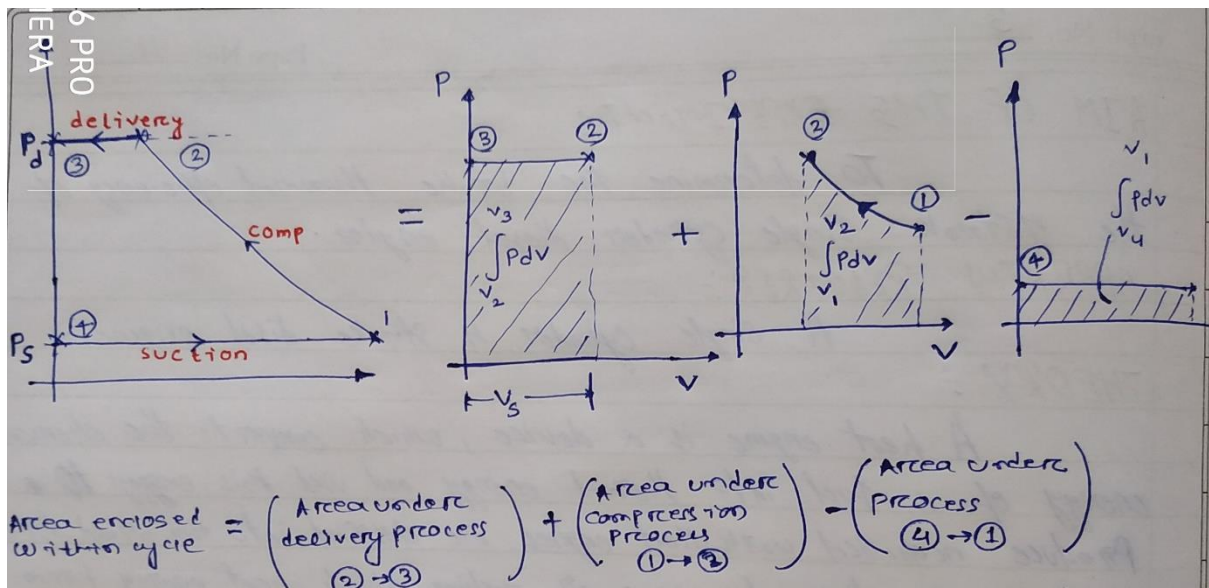 6 PRO
MERA
delivery
Pd
③
②
comp
④
1
Ps
suction
=
P
③
②
V3
∫Pdv
V2
V
Vs
+
P
②
①
V2
∫Pdv
V1
V
-
P
V1
∫Pdv
V4
④
Area enclosed within cycle = (Area under delivery process ②→③) + (Area under compression process ①→②) - (Area under process ④→①)